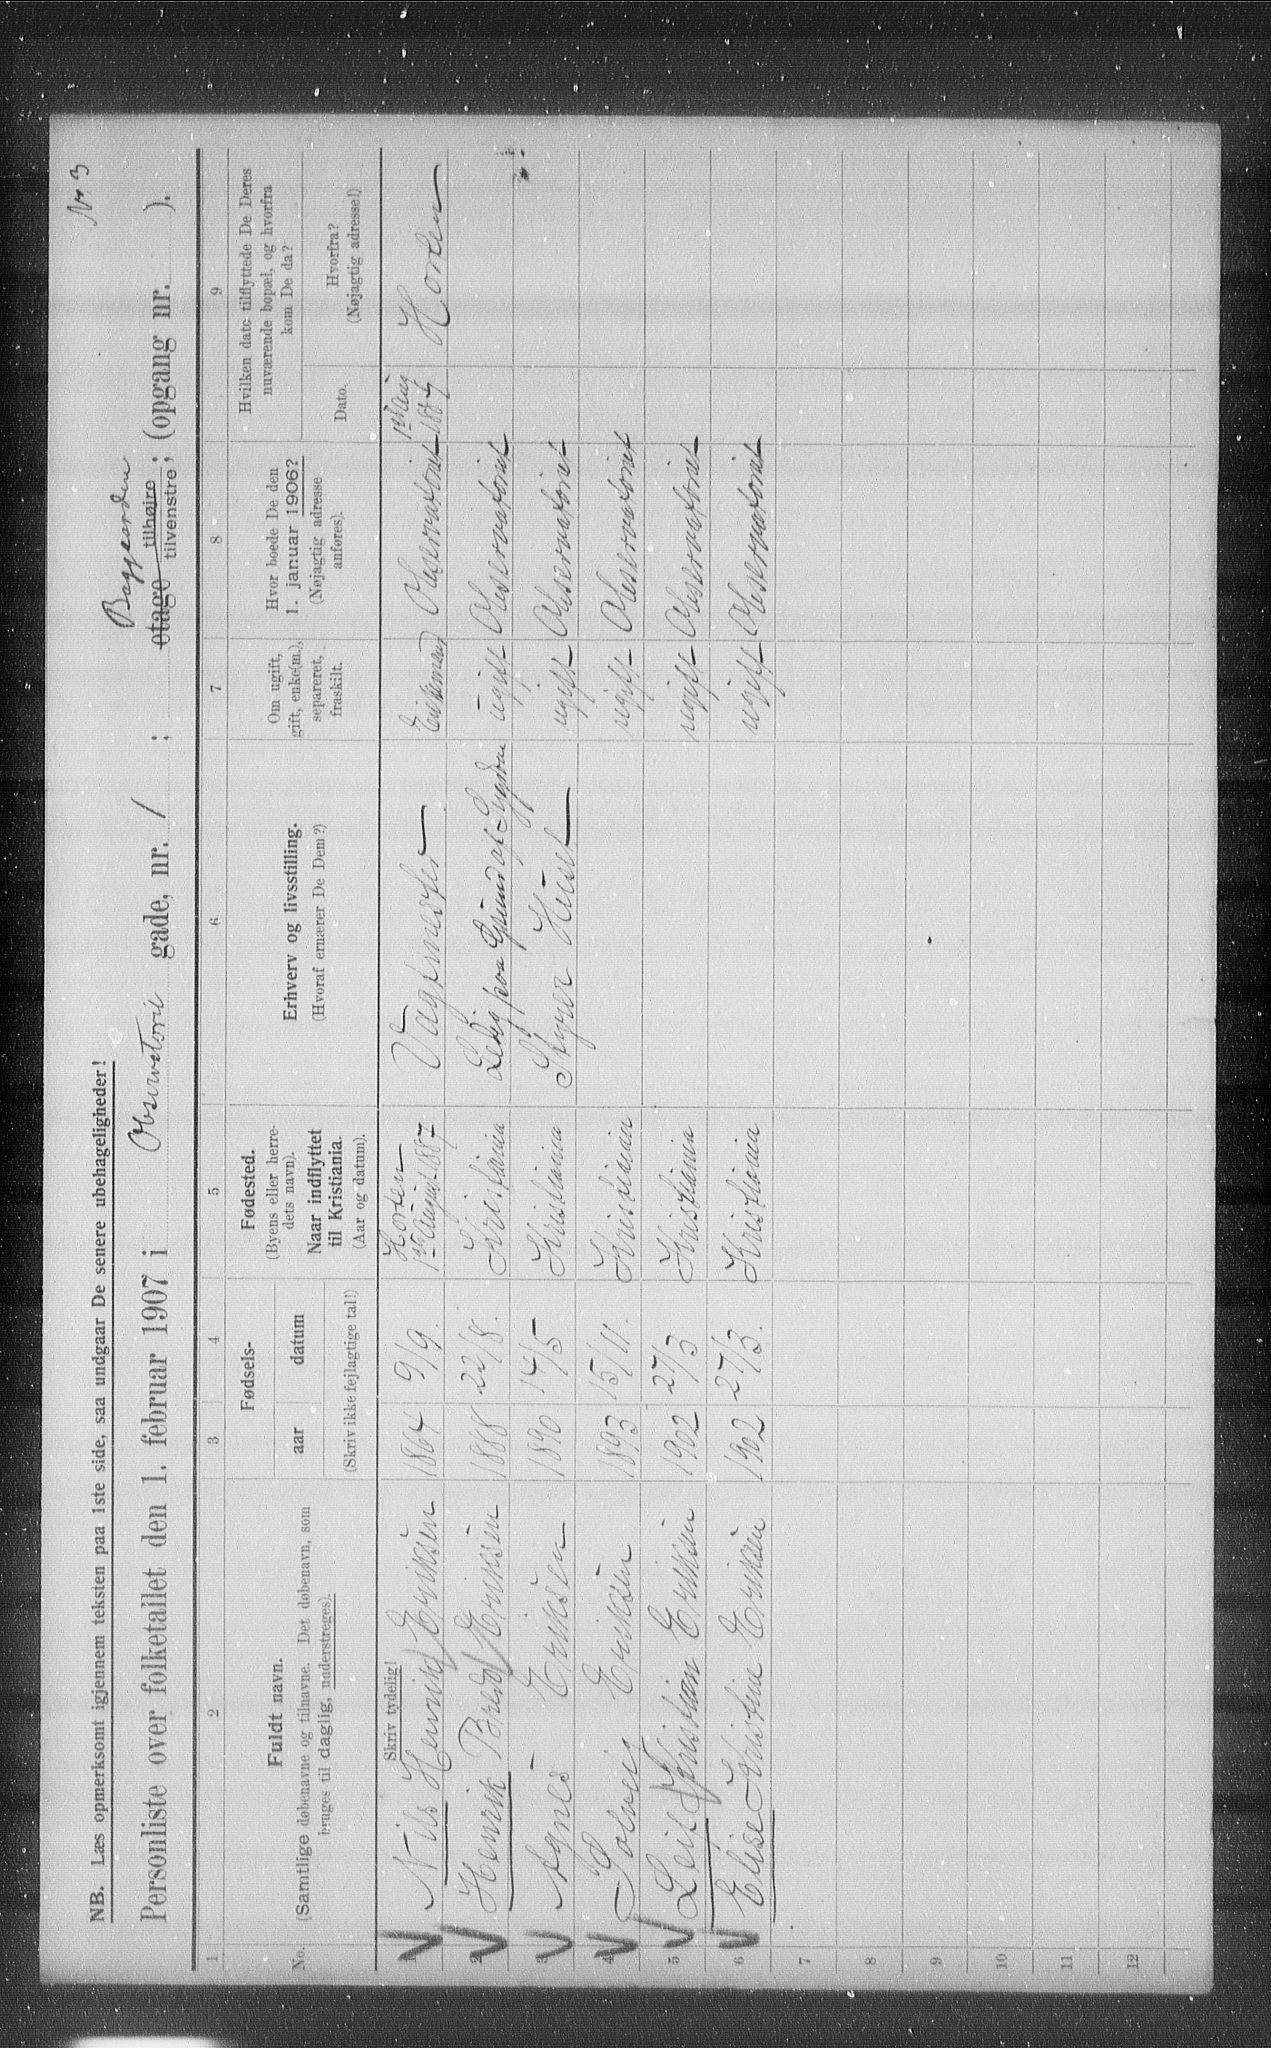 Nr 3
NB. Læs opmerksomt igjennem teksten paa 1ste side, saa undgaar De senere ubehageligheder!
Personliste over folketallet den 1. februar 1907 i Observatorie gade, nr. 1 ; Baggaarden etage tilhøire tilvenstre; (opgang nr. ).
1 2 3 4 5 6 7 8 9
No.
Fuldt navn.
(Samtlige døbenavne og tilnavne. Det døbenavn, som
bruges til daglig, understreges).
Fødsels-
aar datum
(Skriv ikke fejlagtige tal!)
Fødested.
(Byens eller herre-
dets navn).
Naar indflyttet
til Kristiania.
(Aar og datum).
Erhverv og livsstilling.
(Hvoraf ernærer De Dem?)
Om ugift,
gift, enke(m.),
separeret,
fraskilt.
Hvor boede De den
1. januar 1906?
(Nøjagtig adresse
anføres).
Hvilken dato tilflyttede De Deres
nuværende bopæl, og hvorfra
kom De da?
Dato.
Hvorfra?
(Nøjagtig adresse!)
Skriv tydelig!
1 Nils Henrik Eriksen 1864 9/9. Horten 1ste August 1887 Vagtmester Enkemand Observatoriet 1ste Aug 1887 Horten
2 Henrik Eriksen 1888 22/8. Kristiania Ledig paa Grund af Sygdom ugift Observatoriet
3 Agnes Eriksen 1890 14/5 Kristiania Styrer Huset ugift Observatoriet
4 Solveig Eriksen 1893 15/11. Kristiania ugift Observatoriet
5 Leif Kristian Eriksen 1902 27/3 Kristiania ugift Observatoriet
6 Elise Kristine Eriksen 1902 27/3. Kristiania ugift Observatoriet
7
8
9
10
11
12